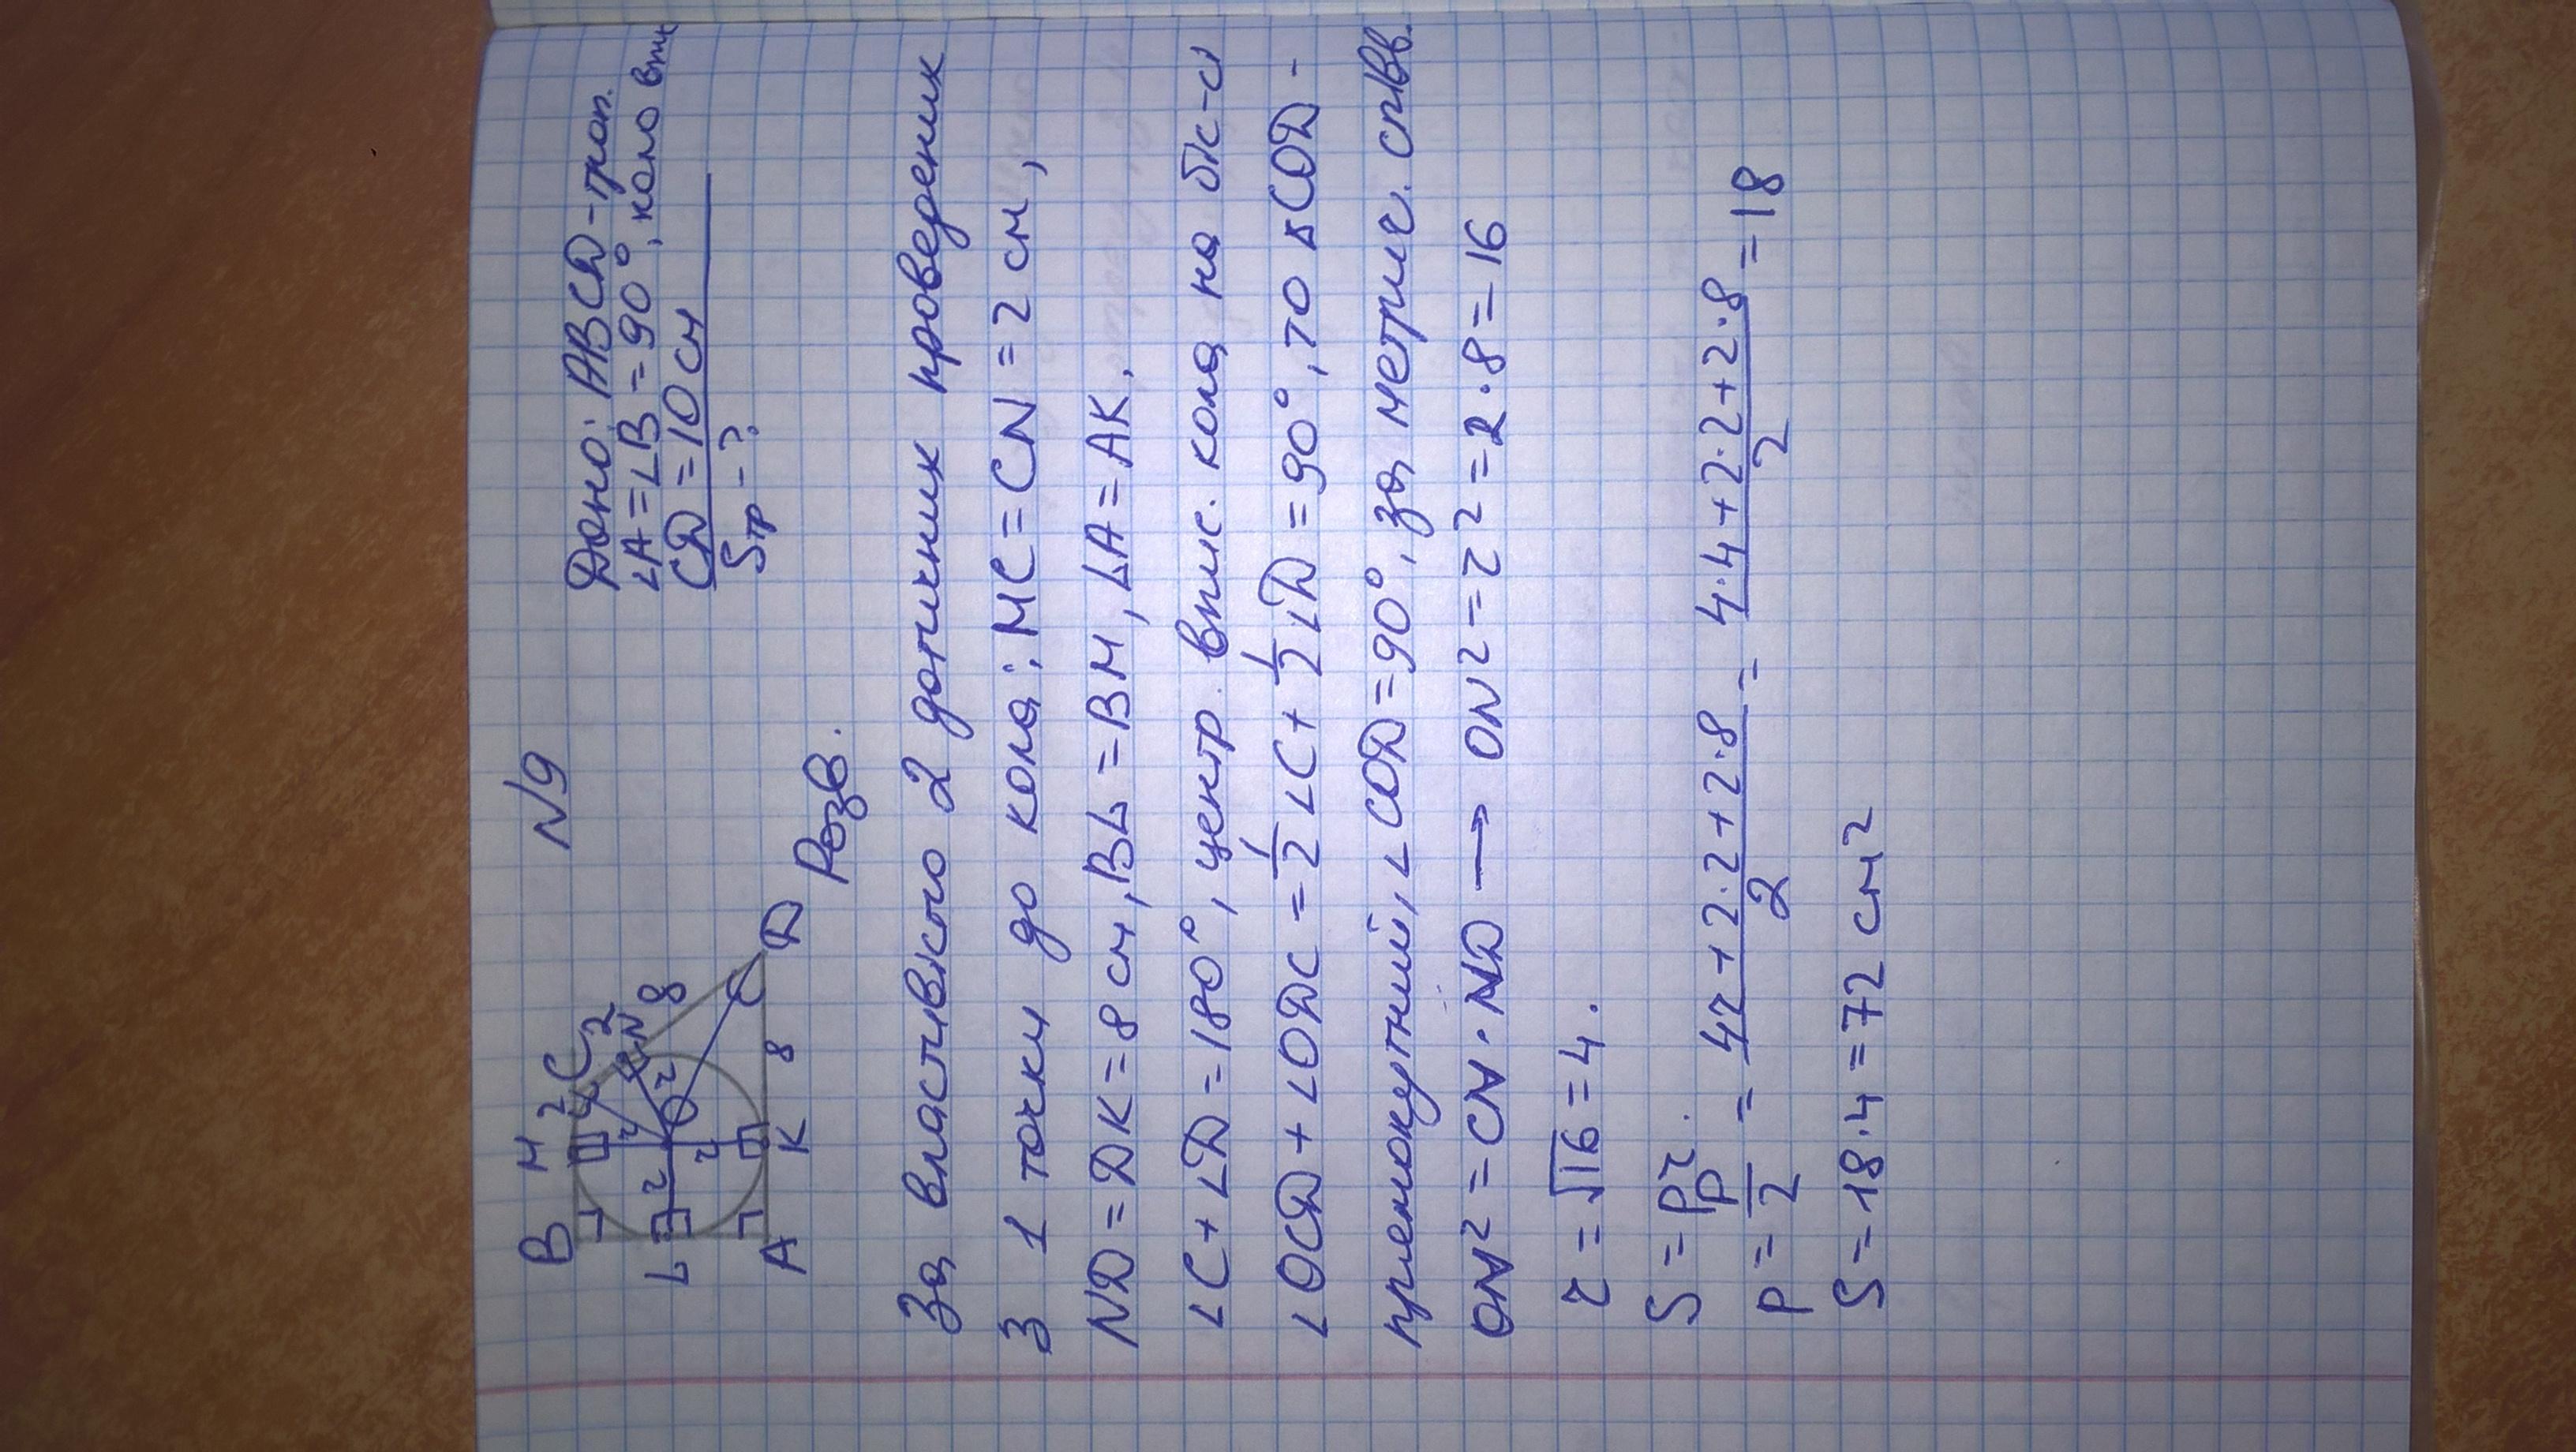 N9
B M 2 C 2 N 8
L r r r r O
A K 8 D
Дано: ABCD-трап.
∠A=∠B=90°, коло впис
CD=10 см
Sтр-?
Розв.
За властивістю 2 дотичних проведених
З 1 точки до кола: MC=CN=2 см,
ND=DK=8 см, BL=BM, LA=AK.
∠C+∠D=180°, центр. впис. кола на біс-сі
∠OCD+∠ODC=1/2∠C+1/2∠D=90°, то ▵COD-
прямокутний, ∠COD=90°, за метрич. співв.
ON²=CN·ND → ON²=r²=2·8=16
r=√16=4.
S=pr.
p=P/2=(4r+2·2+2·8)/2=(4·4+2·2+2·8)/2=18
S=18·4=72 см²